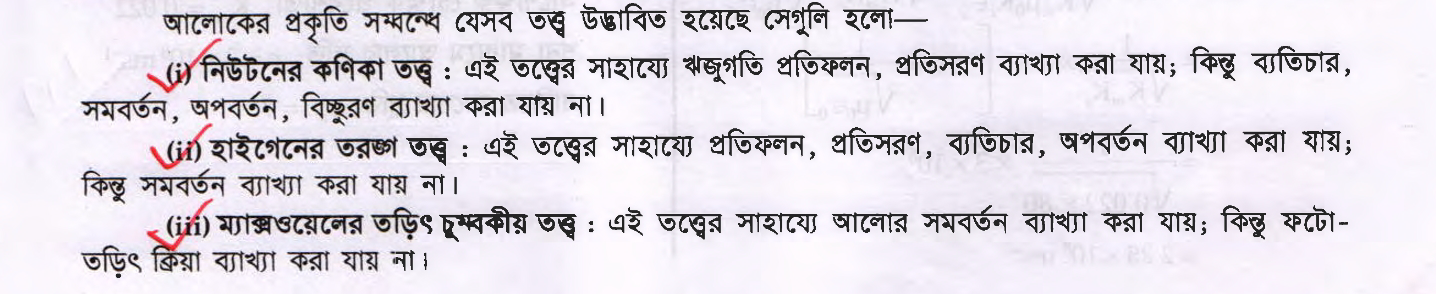 আলোকের প্রকৃতি সম্বন্ধে যেসব তত্ত্ব উদ্ভাবিত হয়েছে সেগুলি হলো—
(i) নিউটনের কণিকা তত্ত্ব : এই তত্ত্বের সাহায্যে ঋজুগতি প্রতিফলন, প্রতিসরণ ব্যাখ্যা করা যায়; কিন্তু ব্যতিচার,
সমবর্তন, অপবর্তন, বিচ্ছুরণ ব্যাখ্যা করা যায় না।
(ii) হাইগেনের তরঙ্গ তত্ত্ব : এই তত্ত্বের সাহায্যে প্রতিফলন, প্রতিসরণ, ব্যতিচার, অপবর্তন ব্যাখ্যা করা যায়;
কিন্তু সমবর্তন ব্যাখ্যা করা যায় না।
(iii) ম্যাক্সওয়েলের তড়িৎ চুম্বকীয় তত্ত্ব : এই তত্ত্বের সাহায্যে আলোর সমবর্তন ব্যাখ্যা করা যায়; কিন্তু ফটো-
তড়িৎ ক্রিয়া ব্যাখ্যা করা যায় না।